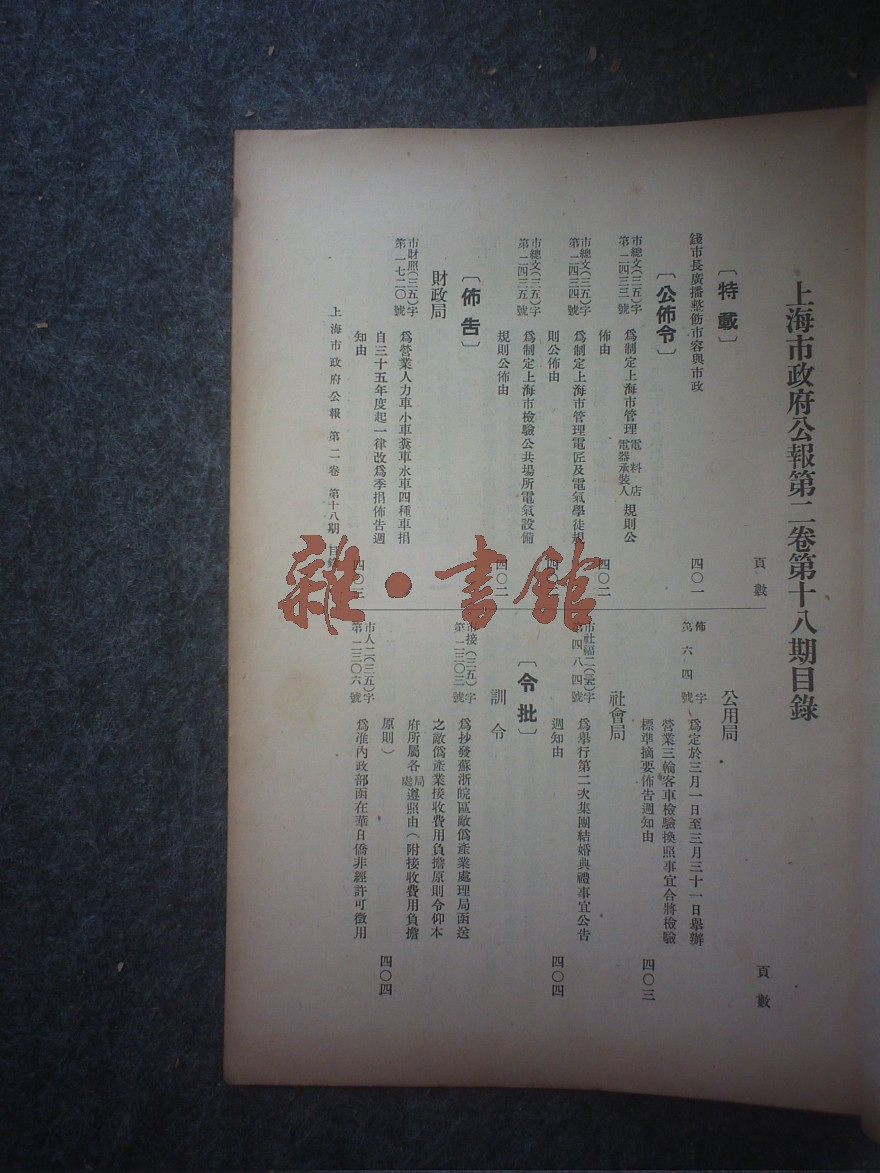 上海市政府公報第二卷第十八期目錄
頁數
〔特載〕
錢市長廣播整飭市容與市政
四〇一
〔公佈令〕
市總文(三五)字
第一二四三三號
爲制定上海市管理電料店電器承裝人規則公
佈由
四〇二
市總文(三五)字
第一二四三四號
爲制定上海市管理電匠及電氣學徒規
則公佈由
市總文(三五)字
第一二四三五號
爲制定上海市檢驗公共場所電氣設備
規則公佈由
四〇二
〔佈告〕
財政局
市財照(三五)字
第一七二〇號
爲營業人力車小車糞車水車四種車捐
自三十五年度起一律改爲季捐佈告週
知由
頁數
公用局
佈字
第六四號
爲定於三月一日至三月三十一日舉辦
營業三輪客車檢驗換照事宜合將檢驗
標準摘要佈告週知由
四〇三
社會局
市社福二(三五)字
第四八四號
爲舉行第二次集團結婚典禮事宜公告
週知由
四〇四
〔令批〕
訓令
市接(三五)字
第一二三〇三號
爲抄發蘇浙皖區敵僞產業處理局函送
之敵僞產業接收費用負擔原則令仰本
府所屬各局處遵照由(附接收費用負擔
原則)
四〇四
市人二(三五)字
第一二三〇六號
爲准內政部函在華日僑非經許可徵用
上海市政府公報 第二卷 第十八期 目錄
雜·書館